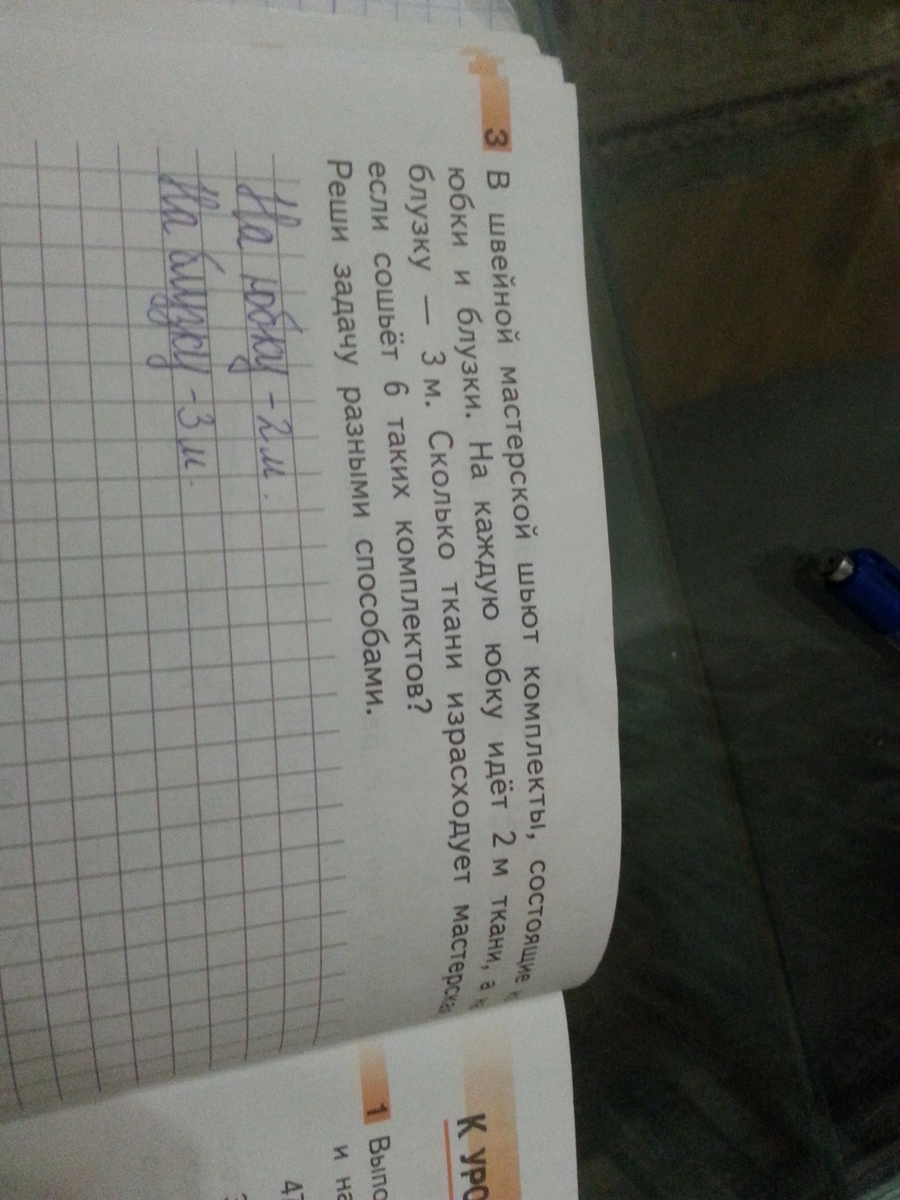 3 В швейной мастерской шьют комплекты, состоящие
юбки и блузки. На каждую юбку идёт 2 м ткани, а
блузку — 3 м. Сколько ткани израсходует
если сошьёт 6 таких комплектов?
Реши задачу разными способами.
На юбку - 2 м.
На блузку - 3 м.
К
1
и
47